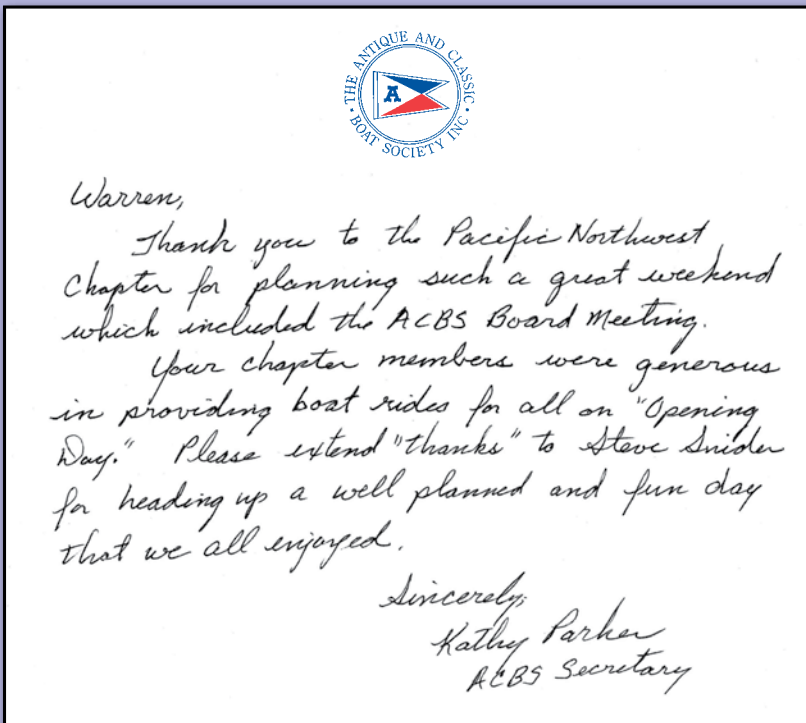 THE ANTIQUE AND CLASSIC
BOAT SOCIETY INC
A
Warren,
Thank you to the Pacific Northwest
Chapter for planning such a great weekend
which included the ACBS Board Meeting.
Your chapter members were generous
in providing boat rides for all on "Opening
Day." Please extend "thanks" to Steve Snider
for heading up a well planned and fun day
that we all enjoyed.
Sincerely,
Kathy Parker
ACBS Secretary